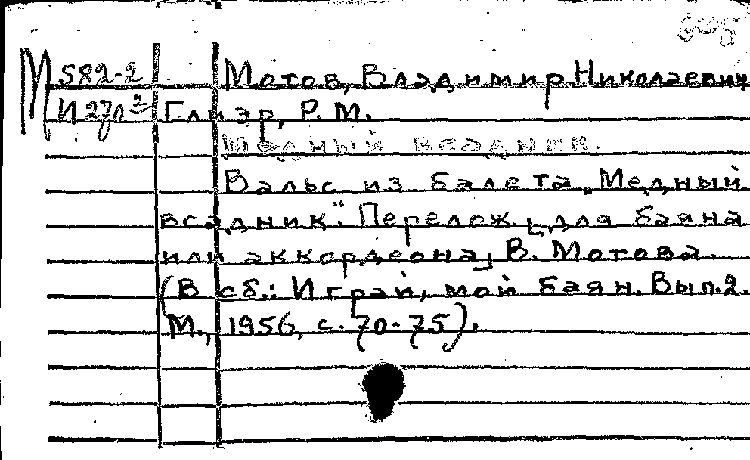 М 582-2 Мотов, Владимир Николаевич
Глиэр, Р. М.
Медный всадник.
Вальс из балета „Медный
всадник“. Перелож. [для баяна
или аккордеона] В. Мотова.
(В сб.: Играй, мой баян. Вып. 2.
М., 1956, с. 70-75).